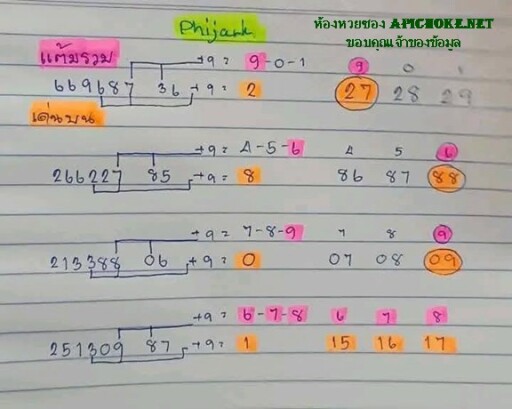 Phijank
ห้องหวยของ APICHOKE.NET
ขอบคุณเจ้าของข้อมูล
แต้มรวม +9 = 9-0-1 9 0 1
669687 36 +9 = 2 27 28 29
เด่นบน
+9 = 4-5-6 4 5 6
266227 85 +9 = 8 86 87 88
+9 = 7-8-9 7 8 9
213388 06 +9 = 0 07 08 09
+9 = 6-7-8 6 7 8
251309 87 +9 = 1 15 16 17